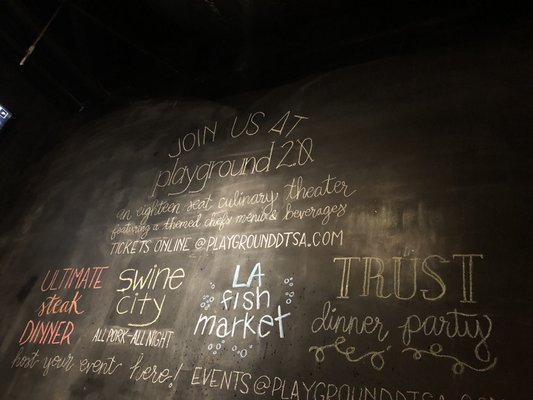 JOIN US AT
playground 2.0
an eighteen seat culinary theater
featuring a themed chef's menu & beverages
TICKETS ONLINE @PLAYGROUNDDTSA.COM
ULTIMATE
steak
DINNER
SWINE
CITY
ALL PORK-ALL NIGHT
LA
fish
market
TRUST
dinner party
host your event here!
EVENTS@PLAYGROUNDDTSA.COM